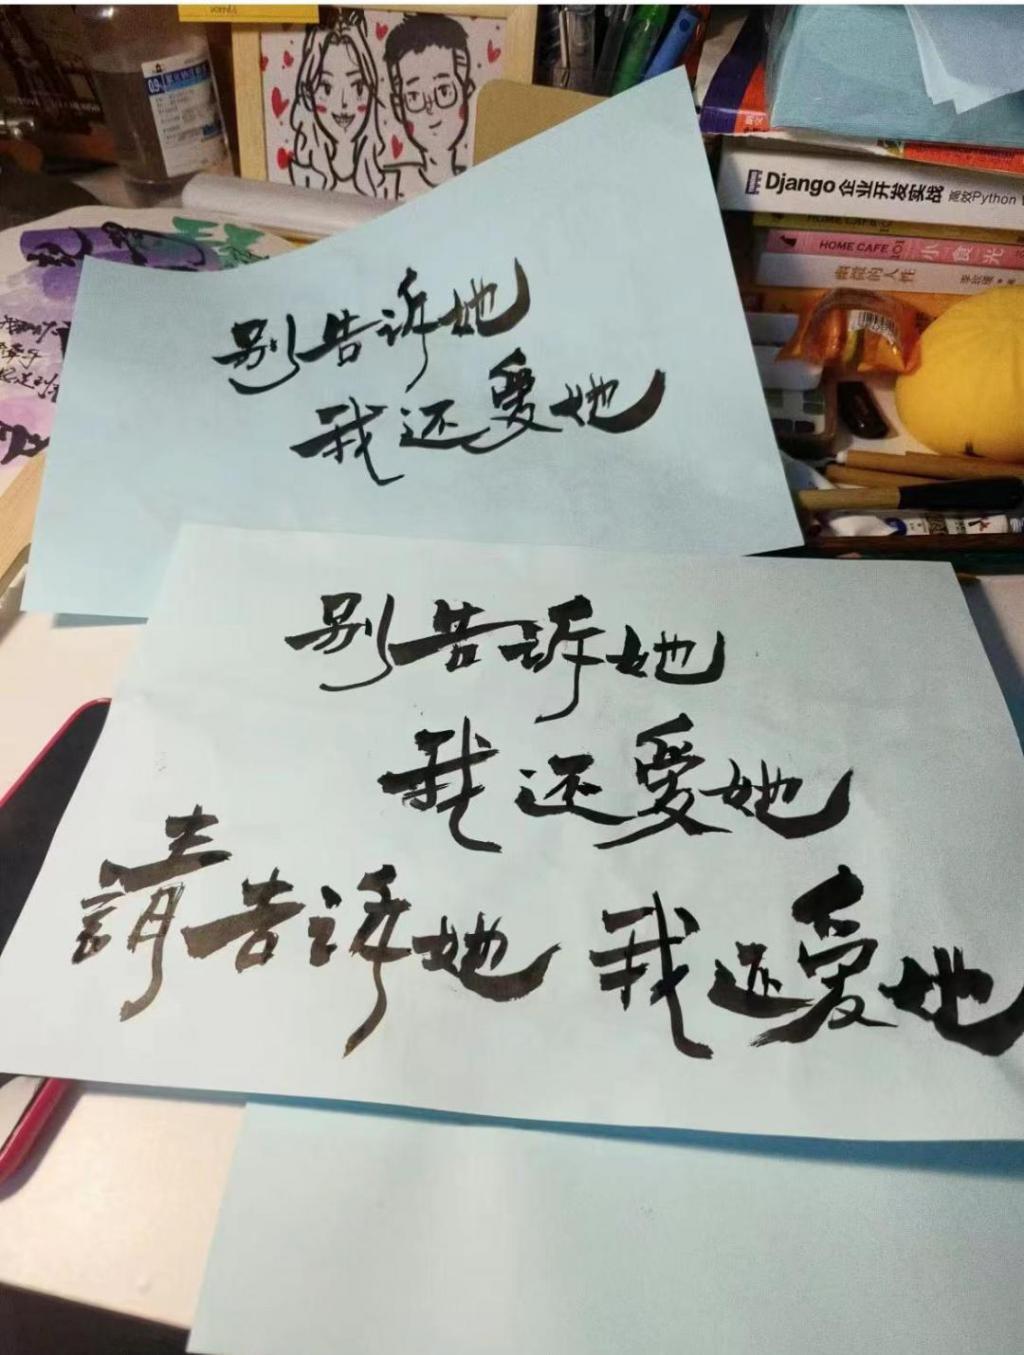 09
Django 企业开发实战 高效Python
HOME CAFE
HOME CAFE 小食光
幽微的人性
别告诉她
我还爱她
别告诉她
我还爱她
請告诉她 我还爱她